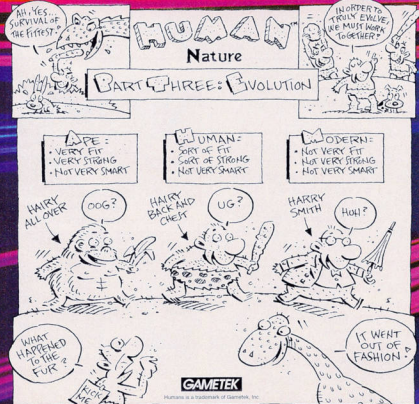 AH, YES...
SURVIVAL OF
THE FITTEST.
HUMAN™
Nature
PART THREE: EVOLUTION
IN ORDER TO
TRULY EVOLVE,
WE MUST WORK
TOGETHER!
APE:
• VERY FIT
• VERY STRONG
• NOT VERY SMART
HUMAN:
• SORT OF FIT
• SORT OF STRONG
• NOT VERY SMART
MODERN:
• NOT VERY FIT
• NOT VERY STRONG
• NOT VERY SMART
HAIRY
ALL OVER
OOG?
HAIRY
BACK AND
CHEST
UG?
HARRY
SMITH
HUH?
WHAT
HAPPENED
TO THE
FUR?
KICK
ME
IT WENT
OUT OF
FASHION!
GAMETEK
Humans is a trademark of Gametek, Inc.